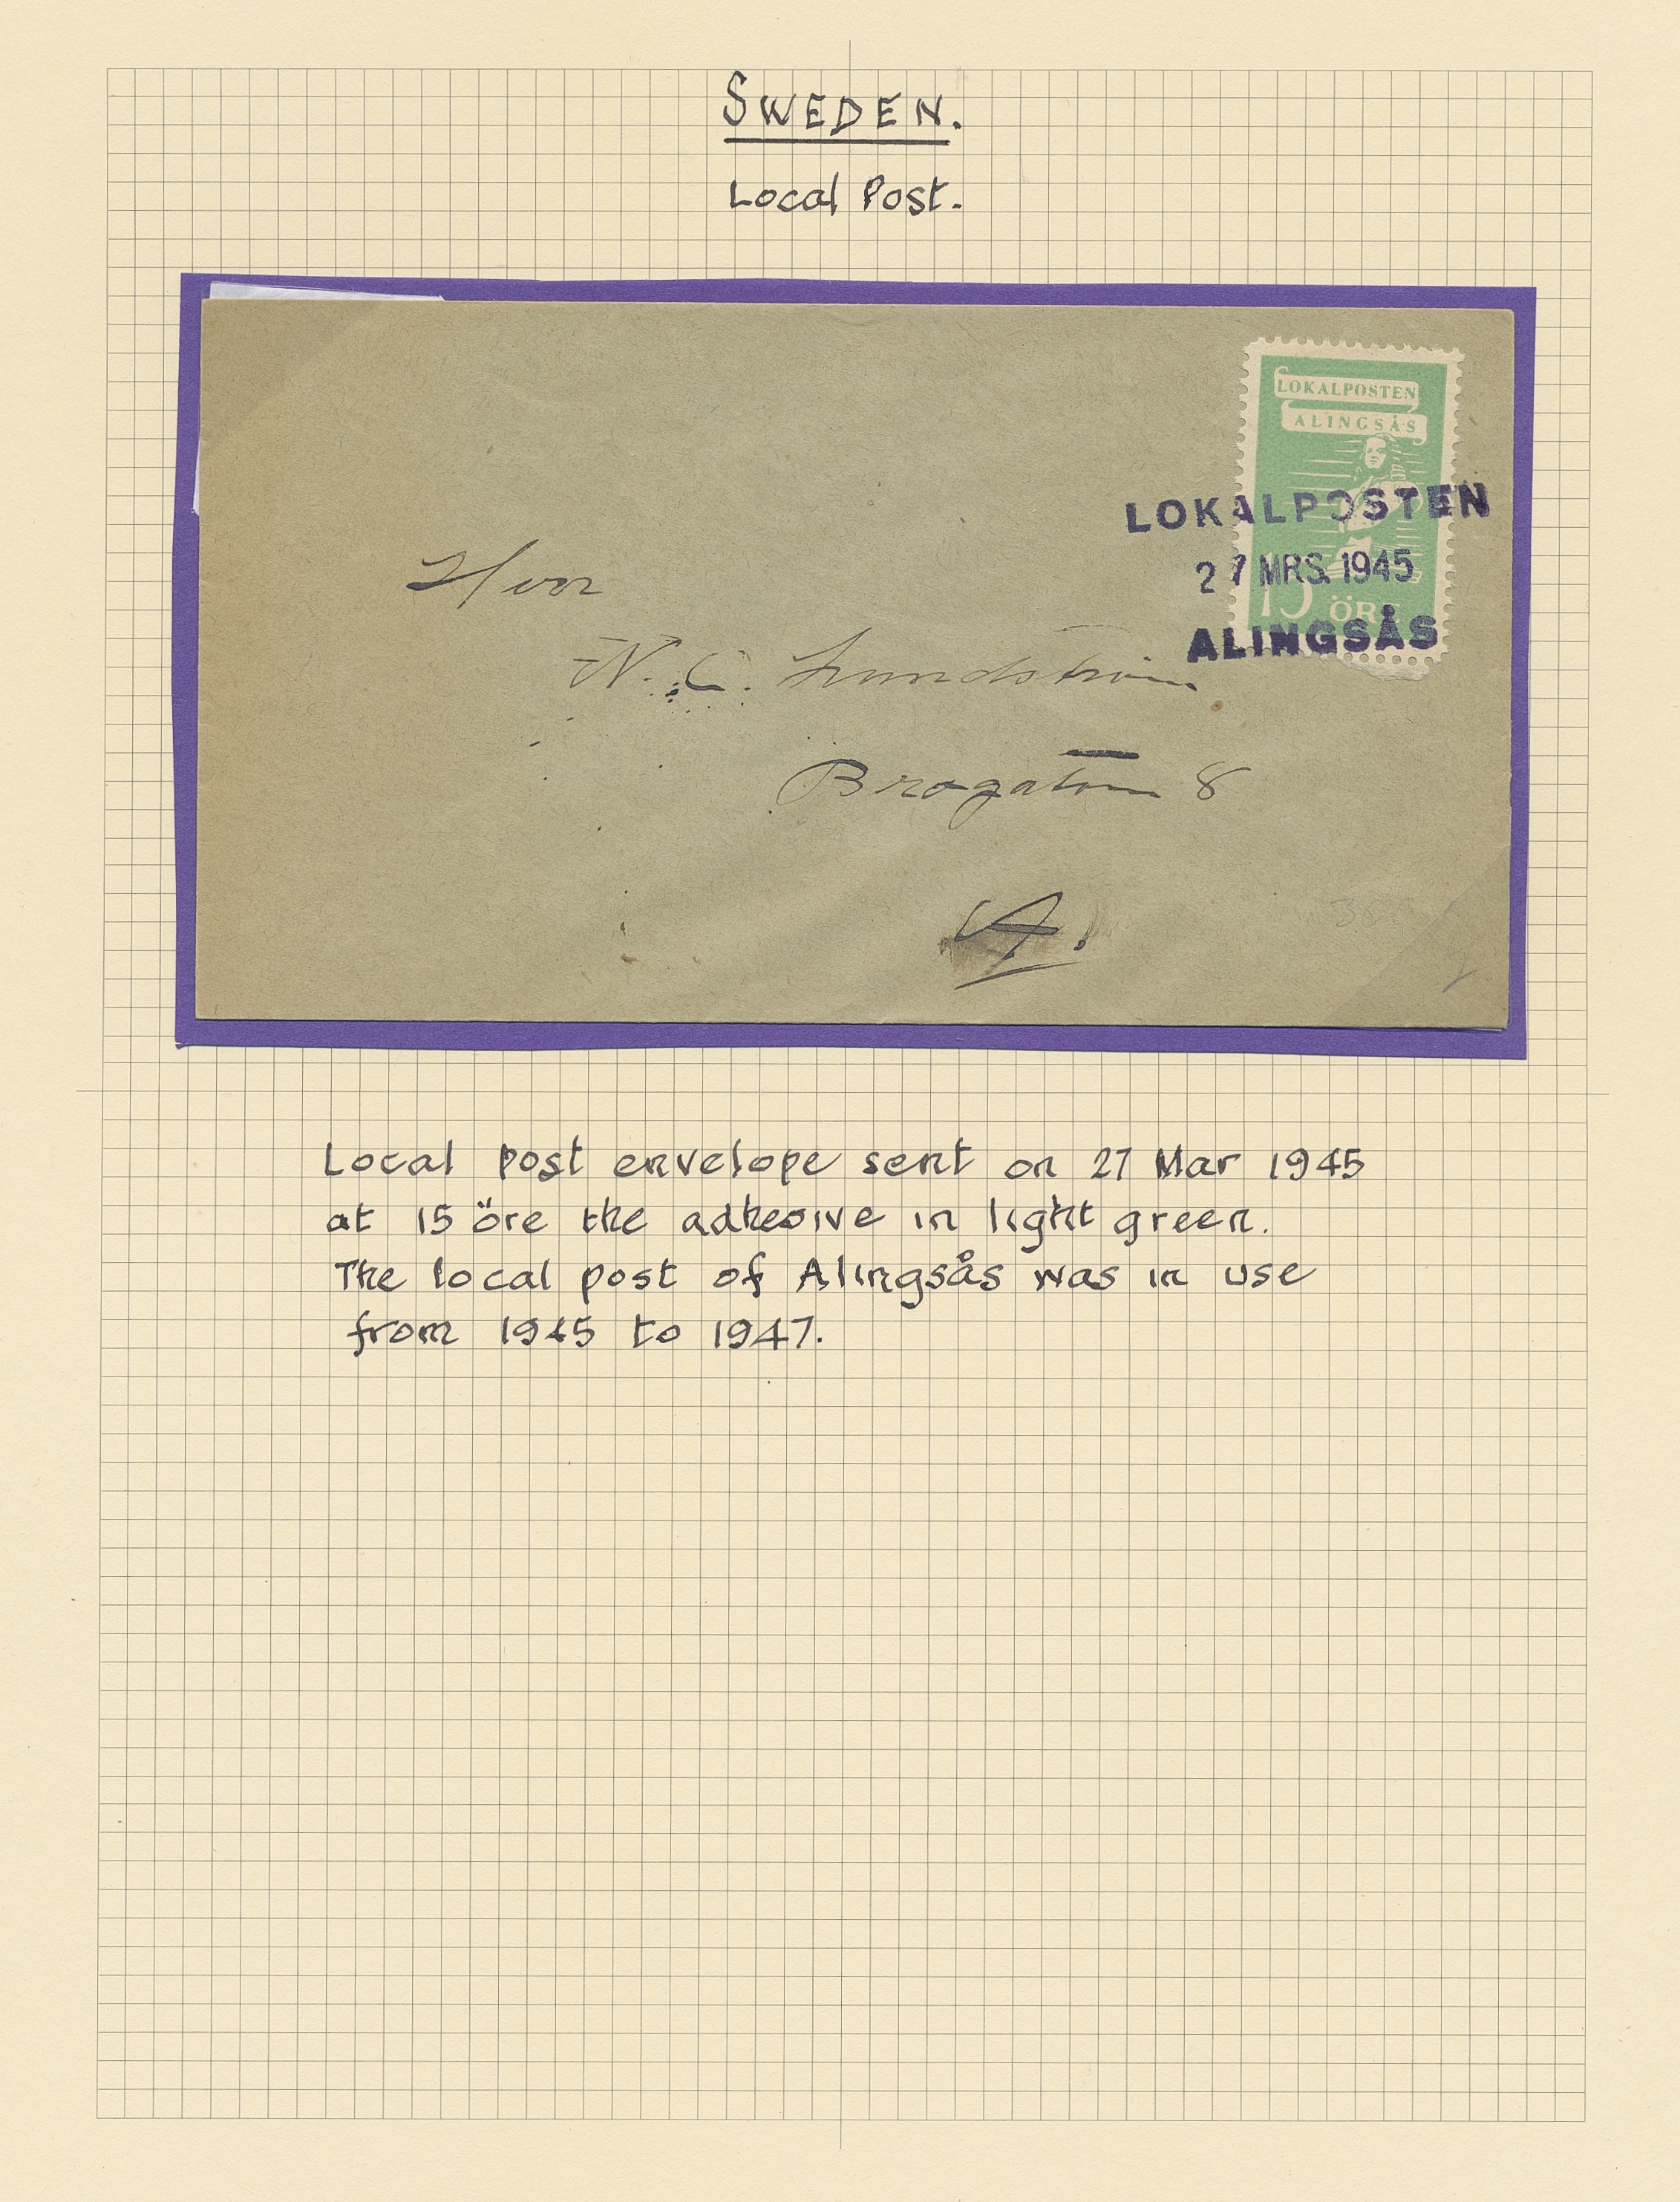 SWEDEN.
Local Post.
LOKALPOSTEN
ALINGSÅS
15 ÖRE
LOKALPOSTEN
27 MRS. 1945
ALINGSÅS
Herr
N. C. Lundström
Brogatan 8
A.
Local post envelope sent on 27 Mar 1945
at 15 öre the adhesive in light green.
The local post of Alingsås was in use
from 1945 to 1947.